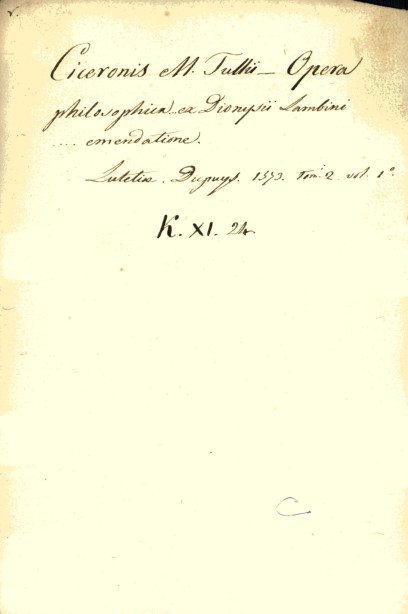 Ciceronis M. Tullii — Opera
philosophica ex Dionysii Lambini
.... emendatione.
Lutetiæ. Dupuys. 1573. Tom. 2. vol. 1º
K. XI. 24